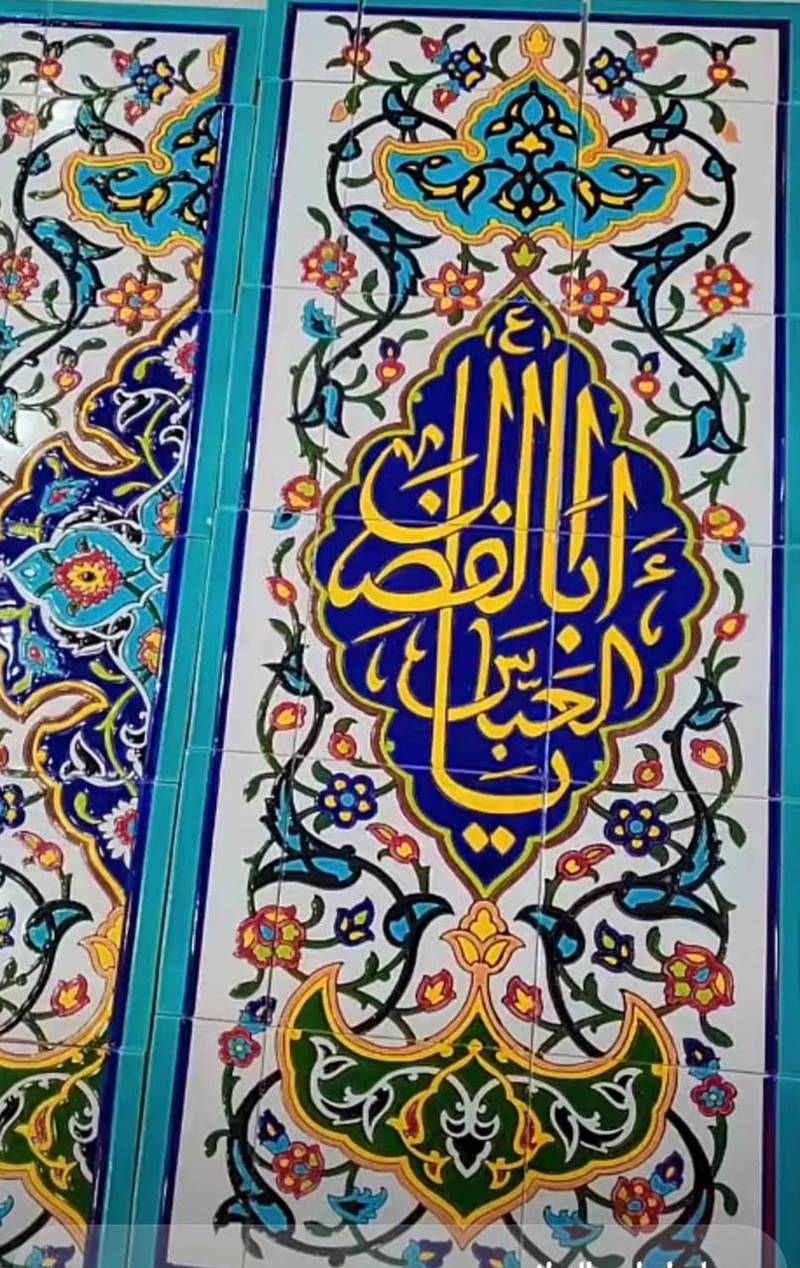 يا أبا الفضل العباس (ع)